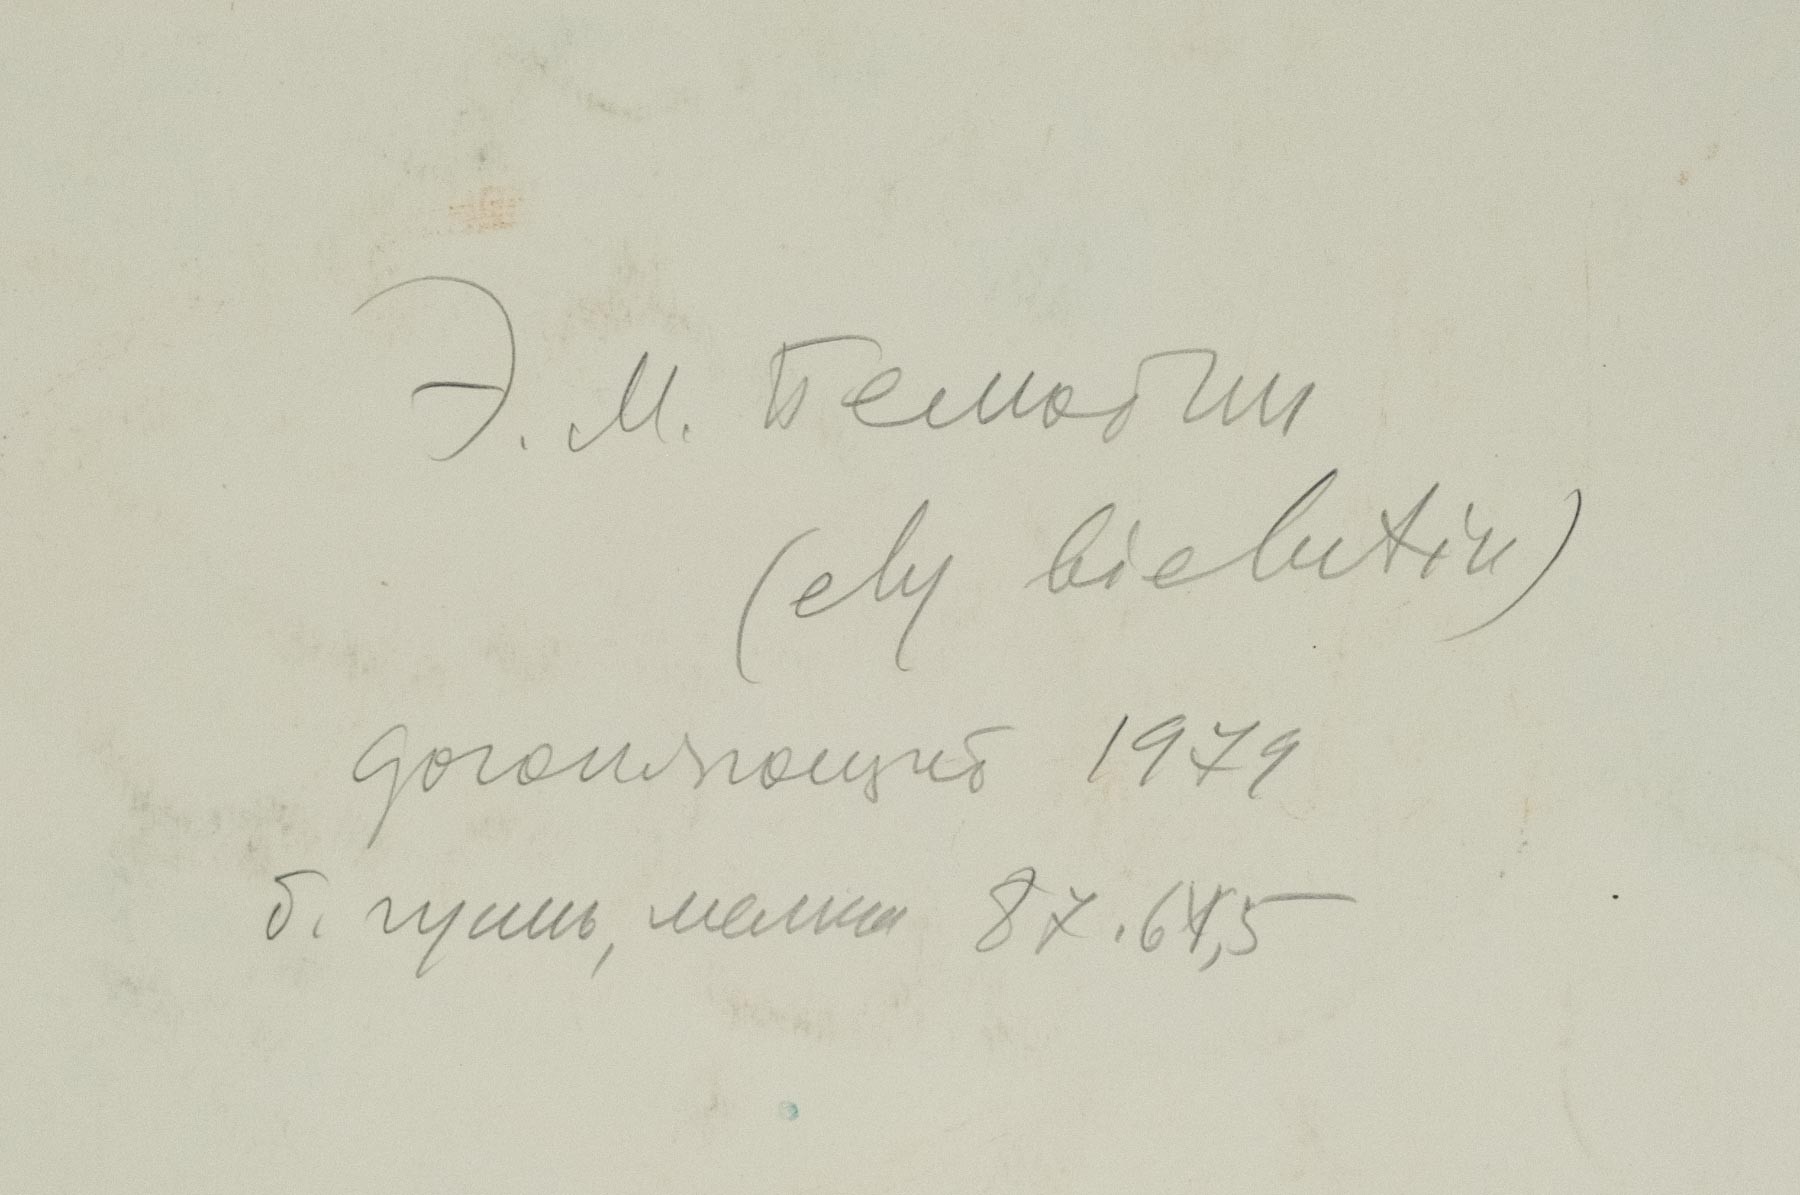 Э. М. Белютин
(ely bielutin)
догоняющий 1979
б. гуашь, мелки 87.64,5